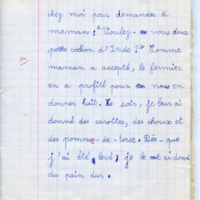 chez moi pour demander à
maman : "Voulez-vous deux
cochon d'Inde ?" Comme
maman a accepté, le fermier
en a profité pour nous en
donner huit. Le soir, je leur ai
donné des carottes, des choux et
des pommes-de-terre. Dès-que
j'ai été levé je le ai donné
du pain dur.